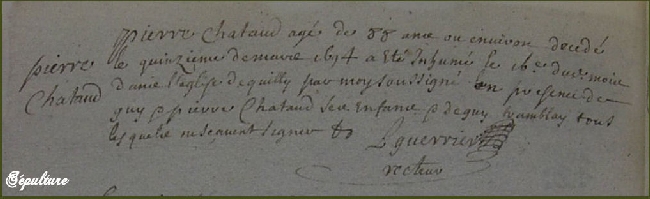 pierre Chataud agé de 88 ans ou environ decedé
pierre
Chataud
le quinziéme de mars 1694 a eté Inhumé le 16e du d mois
dans l'eglise de quilly par moy soussigné en presence de
guy & pierre Chataud ses Enfans & de guy tramblay tous
lesquels ne sçavent signer
guerrier
recteur
Sépulture